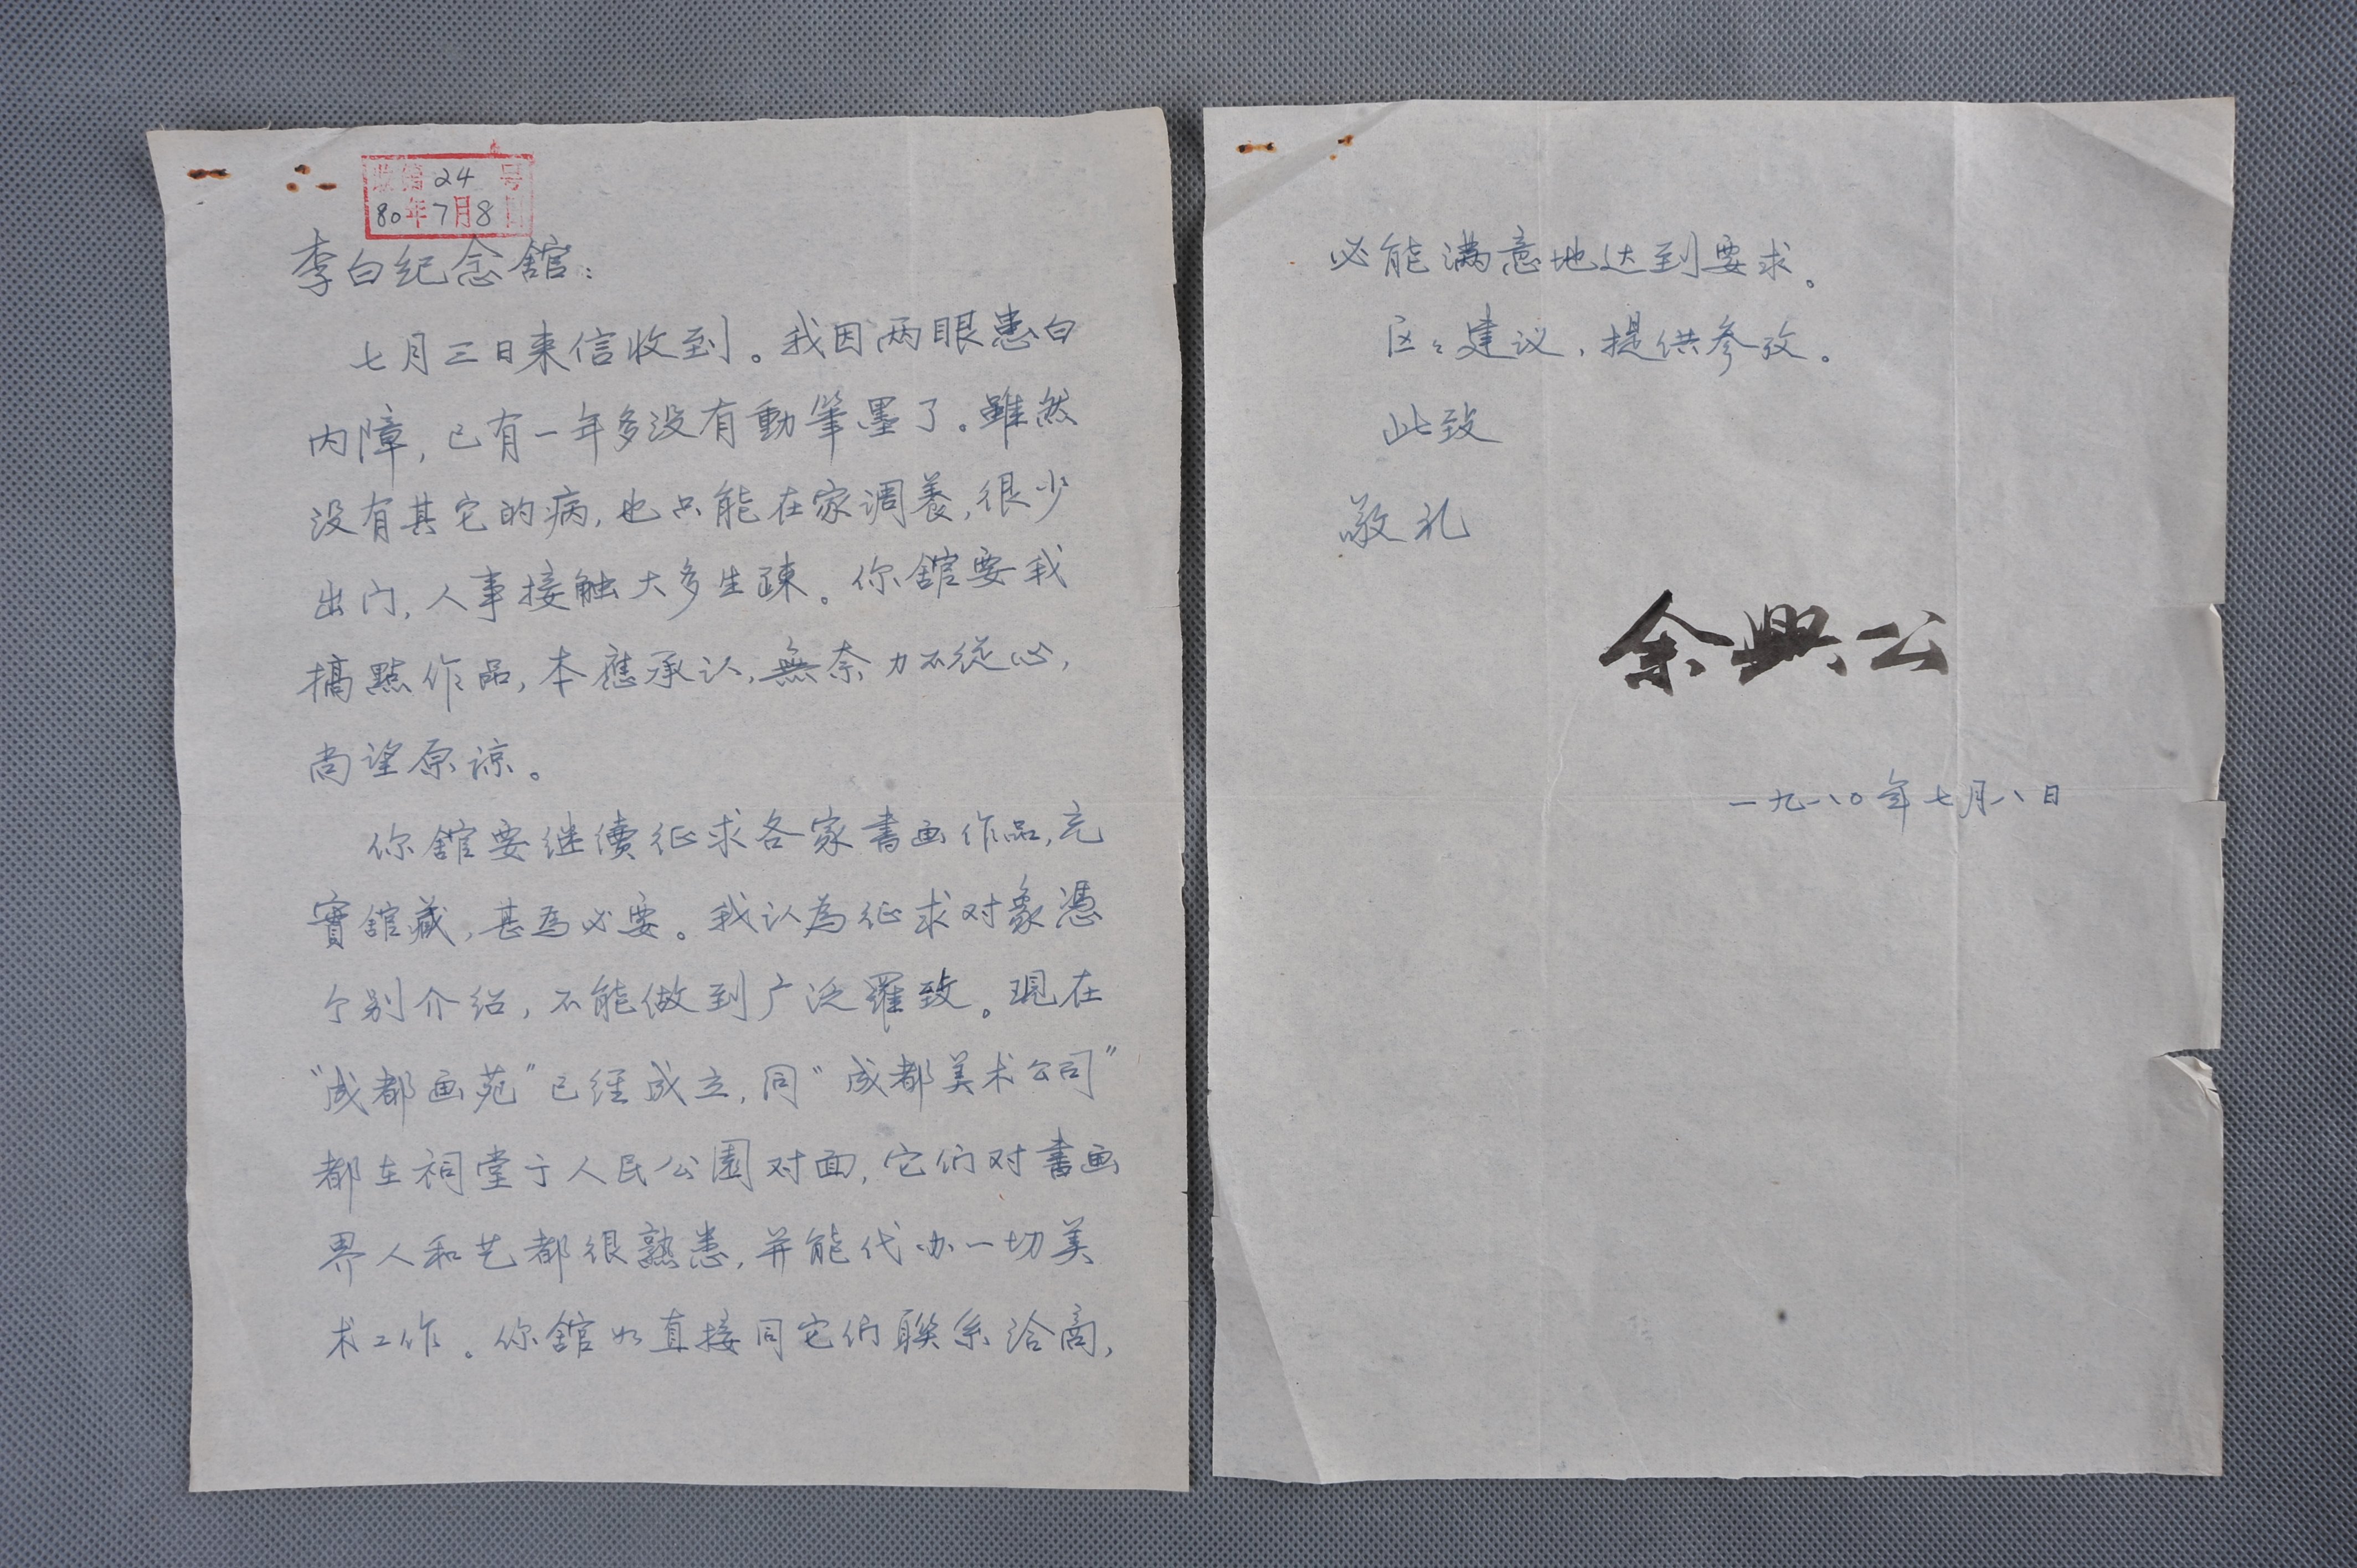 收第24号
80年7月8日
李白纪念舘：
七月三日来信收到。我因两眼患白
内障，已有一年多没有動筆墨了。雖然
没有其它的病，也只能在家调養，很少
出门，人事接触大多生疎。你舘要我
搞點作品，本應承认，無奈力不從心，
尚望原谅。
你舘要继續征求各家書画作品，充
實舘藏，甚為必要。我认為征求对象憑
个别介绍，不能做到广泛羅致。現在
“成都画苑”已经成立，同“成都美术公司”
都在祠堂于人民公園对面，它们对書画
界人和艺都很熟悉，并能代办一切美
术工作。你舘如直接同它们联系洽商，
必能满意地达到要求。
区々建议，提供参攷。
此致
敬礼
余興公
一九八〇年七月八日